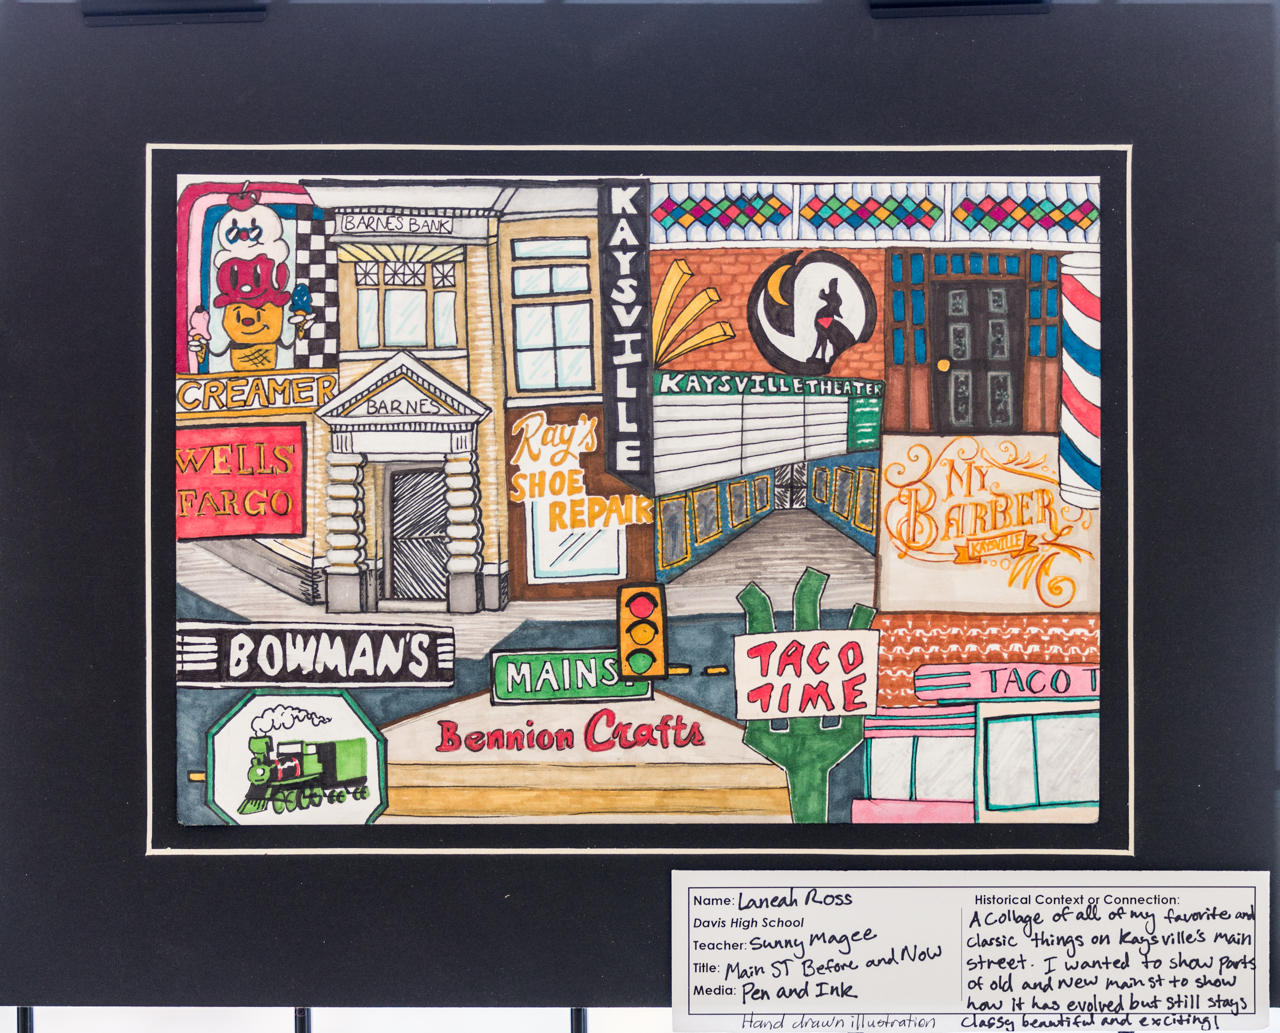 BARNES BANK
KAYSVILLE
CREAMER
BARNES
KAYSVILLE THEATER
WELLS
FARGO
Ray's
SHOE
REPAIR
MY
BARBER
KAYSVILLE
BOWMAN'S
MAIN S
TACO
TIME
TACO T
Bennion Crafts
Name: Laneah Ross
Davis High School
Teacher: Sunny Magee
Title: Main ST Before and Now
Media: Pen and Ink
Hand drawn illustration
Historical Context or Connection:
A collage of all of my favorite and
classic things on Kaysville's main
street. I wanted to show parts
of old and new main st to show
how it has evolved but still stays
classy beautiful and exciting!